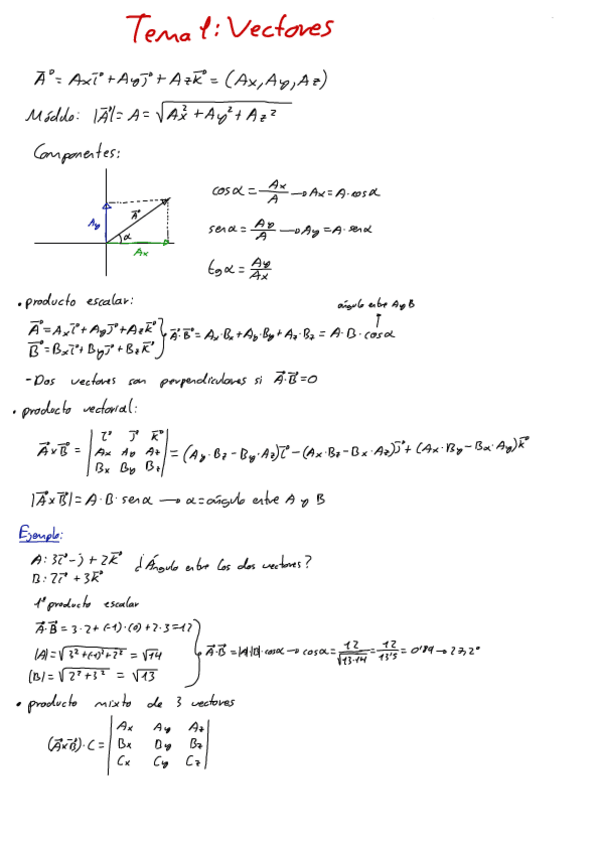 Tema 1: Vectores
A⃗ = Axi⃗ + Ayj⃗ + Azk⃗ = (Ax, Ay, Az)
Módulo: |A⃗| = A = √(Ax² + Ay² + Az²)
Componentes:
Ay A⃗ α Ax
cosα = Ax/A → Ax = A·cosα
senα = Ay/A → Ay = A·senα
tgα = Ay/Ax
• producto escalar:
ángulo entre A y B
A⃗ = Axi⃗ + Ayj⃗ + Azk⃗
B⃗ = Bxi⃗ + Byj⃗ + Bzk⃗
A⃗·B⃗ = Ax·Bx + Ay·By + Az·Bz = A·B·cosα
- Dos vectores son perpendiculares si A⃗·B⃗ = 0
• producto vectorial:
A⃗xB⃗ = | i⃗ j⃗ k⃗ |
| Ax Ay Az |
| Bx By Bz |
= (Ay·Bz - By·Az)i⃗ - (Ax·Bz - Bx·Az)j⃗ + (Ax·By - Bx·Ay)k⃗
|A⃗xB⃗| = A·B·senα → α = ángulo entre A y B
Ejemplo:
A: 3i⃗ - j + 2k⃗
B: 2i⃗ + 3k⃗
¿Ángulo entre los dos vectores?
1º producto escalar
A⃗·B⃗ = 3·2 + (-1)·(0) + 2·3 = 12
|A| = √(3² + (-1)² + 2²) = √14
|B| = √(2² + 3²) = √13
A⃗·B⃗ = |A||B|·cosα → cosα = 12/√(13·14) = 12/13'5 = 0'89 → 27,2°
• producto mixto de 3 vectores
(A⃗xB⃗)·C = | Ax Ay Az |
| Bx By Bz |
| Cx Cy Cz |